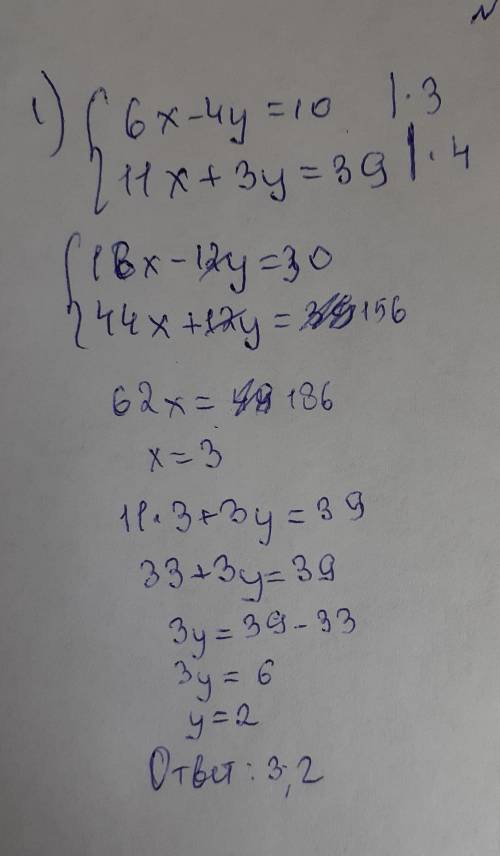 N
1) { 6x-4y=10 |·3
11x+3y=39 |·4
{ 18x-12y=30
44x+12y= 156
62x= 186
x=3
11·3+3y=39
33+3y=39
3y=39-33
3y=6
y=2
Ответ: 3;2